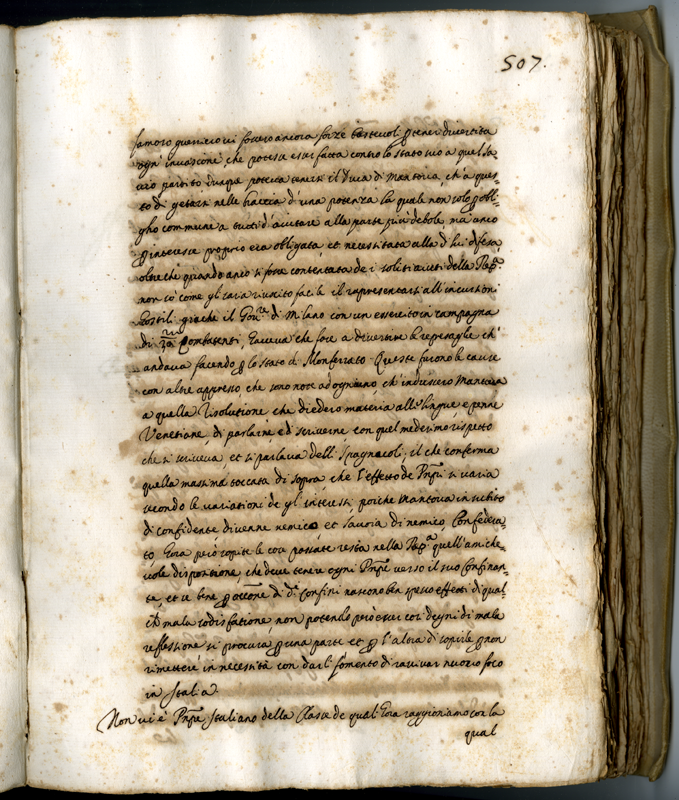 507.
famoso guerriero vi fossero ancora forze bastevoli p tener divertita
ogn' invasione, che potesse esser fatta contro lo stato suo a quel sa-
vio partito dunque poteva tenersi il Duca di Mantova, ch'a ques-
to di gettarsi nelle braccia d'una potenza la quale non solo p obli-
gho commune a tutti d'aiutare alla parte più debole, mà anco
p interesse proprio era obligata et necessitata alla di lui difesa
oltre che quando anco si fosse contentata de i soliti aiuti della Rep.ca
non sò come gli saria riuscito facile il rapresentarsi all'incursioni
hostili, giache il Gov.re di Milano con un essercito in campagna
di 30 Combatenti, haveva che fare a divertire le represaglie ch'
andava facendo p lo stato di Monferrato. Queste furono le cause
con altre appresso che sono note ad ogniuno ch'indussero Mantova
a quella risolutione che diedero materia alle lingue e penne
Venetiane di parlarne ed scriverne con quel medesimo rispetto
che si scriveva, et si parlava delli Spagnuoli; il che conferma
quella massima toccata di sopra che l'effetto de Prnpi si varia
secondo le variationi de gl'interessi poiche Mantova in subito
di confidente divenne nemico et Savoia di nemico, Confedera-
to. Hora però sopite le cose passate resta nella Rep.ca quell'amiche-
vole dispositione, che deve tenere ogni Prnpe verso il suo Confinan-
te, et se bene p occ.one di d.i Confini nascono ben spesso effetti di qual-
che mala sodisfatione non potendo però esser così degni di mala
reflessione si procura p una parte et p l'altra di sopirle p non
rimettere in necessità con darli fomento di ravivar nuovo foco
in Italia.
Non vi è Prnpe Italiano della Classe de quali hora raggioniamo con la
qual